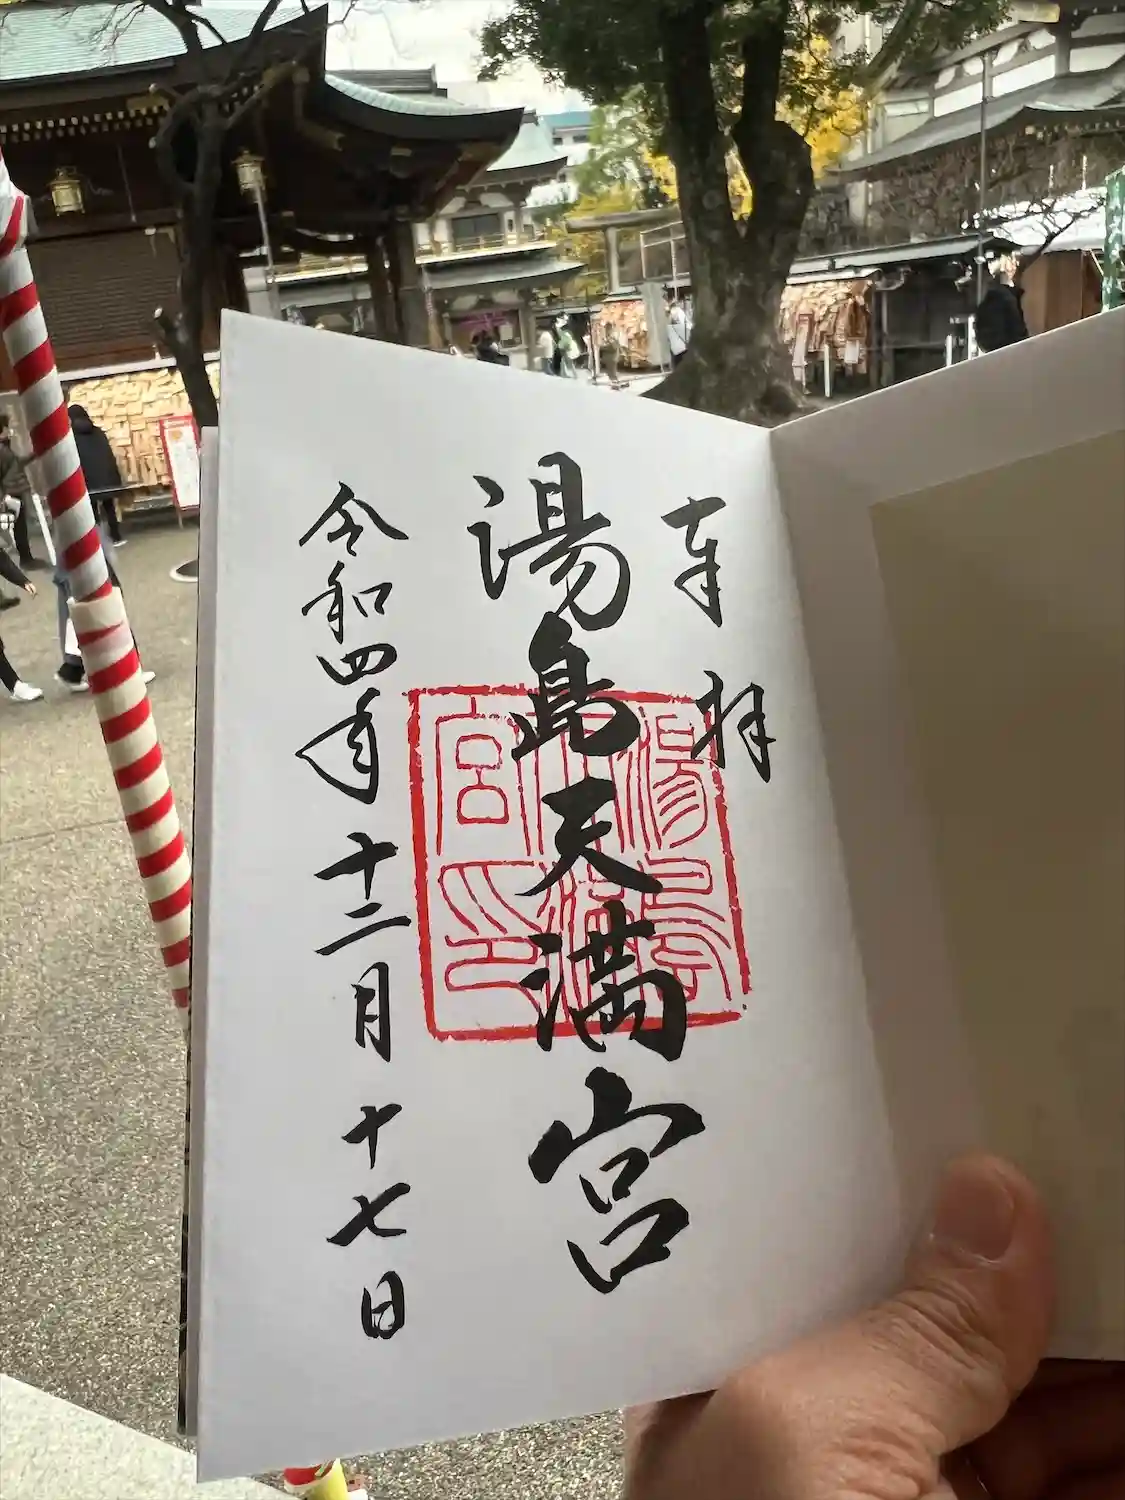 奉拝
湯島天満宮
湯島天満宮印
令和四年十二月十七日